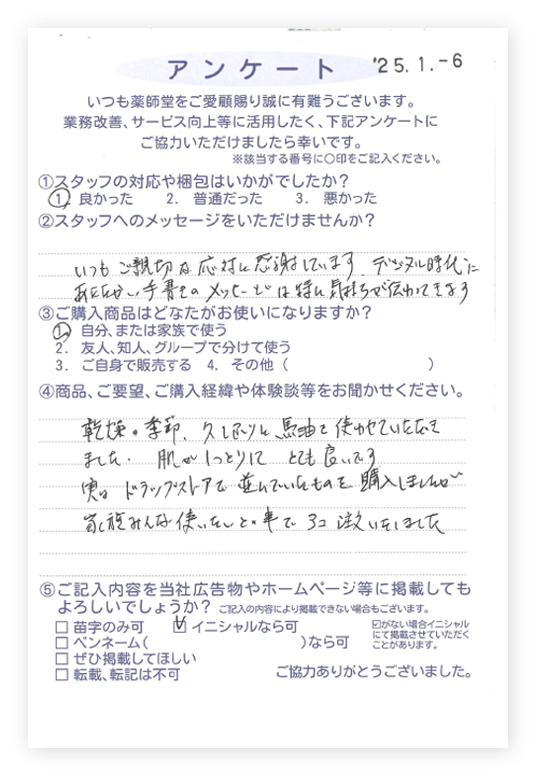 '25.1.-6
アンケート
いつも薬師堂をご愛顧賜り誠に有難うございます。
業務改善、サービス向上等に活用したく、下記アンケートに
ご協力いただけましたら幸いです。
※該当する番号に○印をご記入ください。
①スタッフの対応や梱包はいかがでしたか?
1. 良かった 2. 普通だった 3. 悪かった
②スタッフへのメッセージをいただけませんか?
いつもご親切な応対に感謝しています デジタル時代に
あたたかい手書きのメッセージは特に気持ちが伝わってきます
③ご購入商品はどなたがお使いになりますか?
1. 自分、または家族で使う
2. 友人、知人、グループで分けて使う
3. ご自身で販売する 4. その他( )
④商品、ご要望、ご購入経緯や体験談等をお聞かせください。
乾燥の季節、久しぶりに馬油を使わせていただき
ました. 肌がしっとりして とても良いです
実は ドラッグストアで並んでいたものを購入しましたが
家族みんな使いたいとの事で 3コ注文いたしました
⑤ご記入内容を当社広告物やホームページ等に掲載しても
よろしいでしょうか? ご記入の内容により掲載できない場合もございます。
□ 苗字のみ可 ☑ イニシャルなら可
□ ペンネーム( )なら可
☑がない場合イニシャル
にて掲載させていただく
ことがあります。
□ ぜひ掲載してほしい
□ 転載、転記は不可
ご協力ありがとうございました。